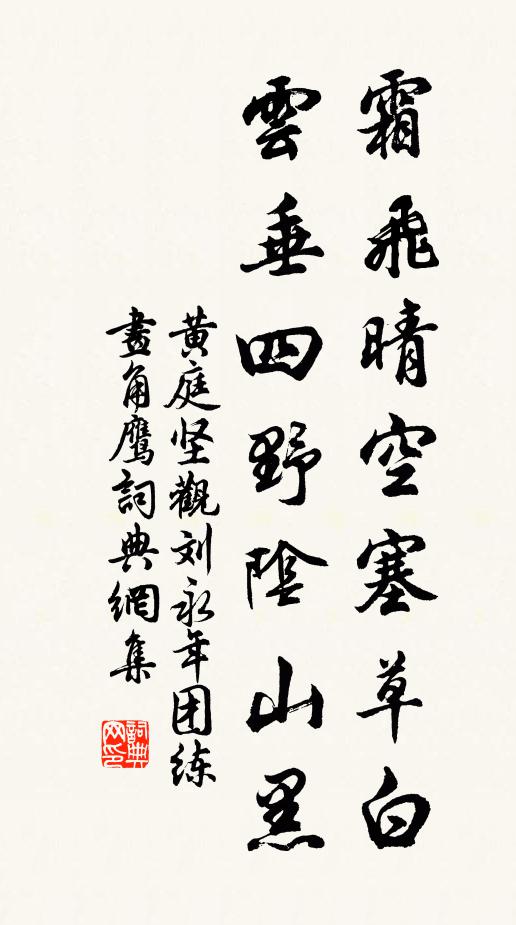 霜飛晴空塞草白
雲垂四野陰山黑
黄庭坚觀刘永年团练
畫角鹰詞典網集
詞典网印